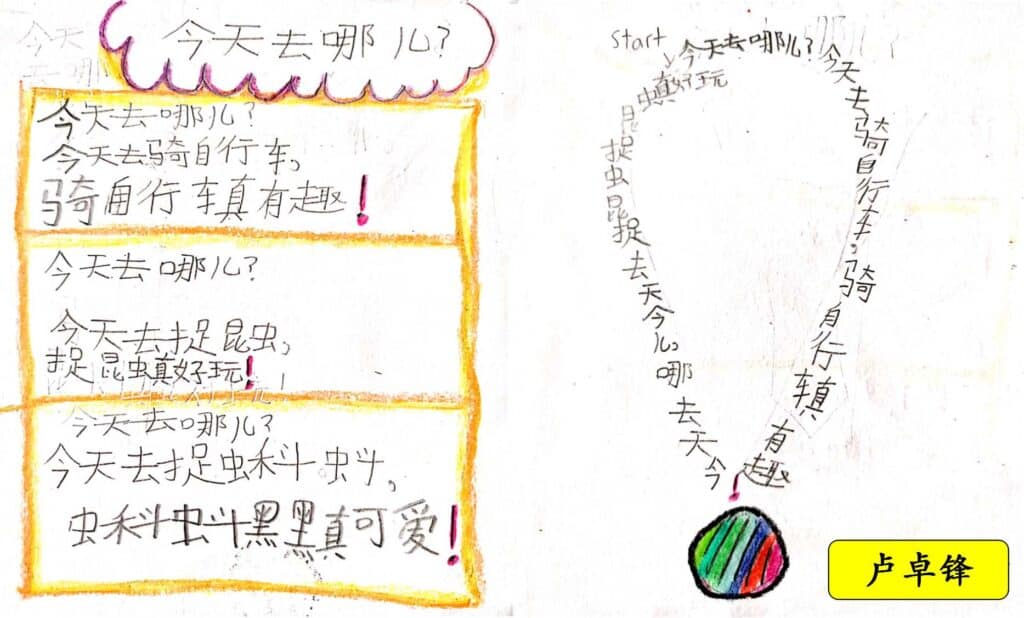 今天去哪儿?
今天去哪儿?
今天去骑自行车,
骑自行车真有趣!
今天去哪儿?
今天去捉昆虫,
捉昆虫真好玩!
今天去哪儿?
今天去捉蝌蚪,
蝌蚪黑黑真可爱!
start
今天去哪儿?今天去骑自行车,骑自行车真有趣!
今天去哪儿。今天去捉昆虫捉昆虫真好玩
卢卓锋